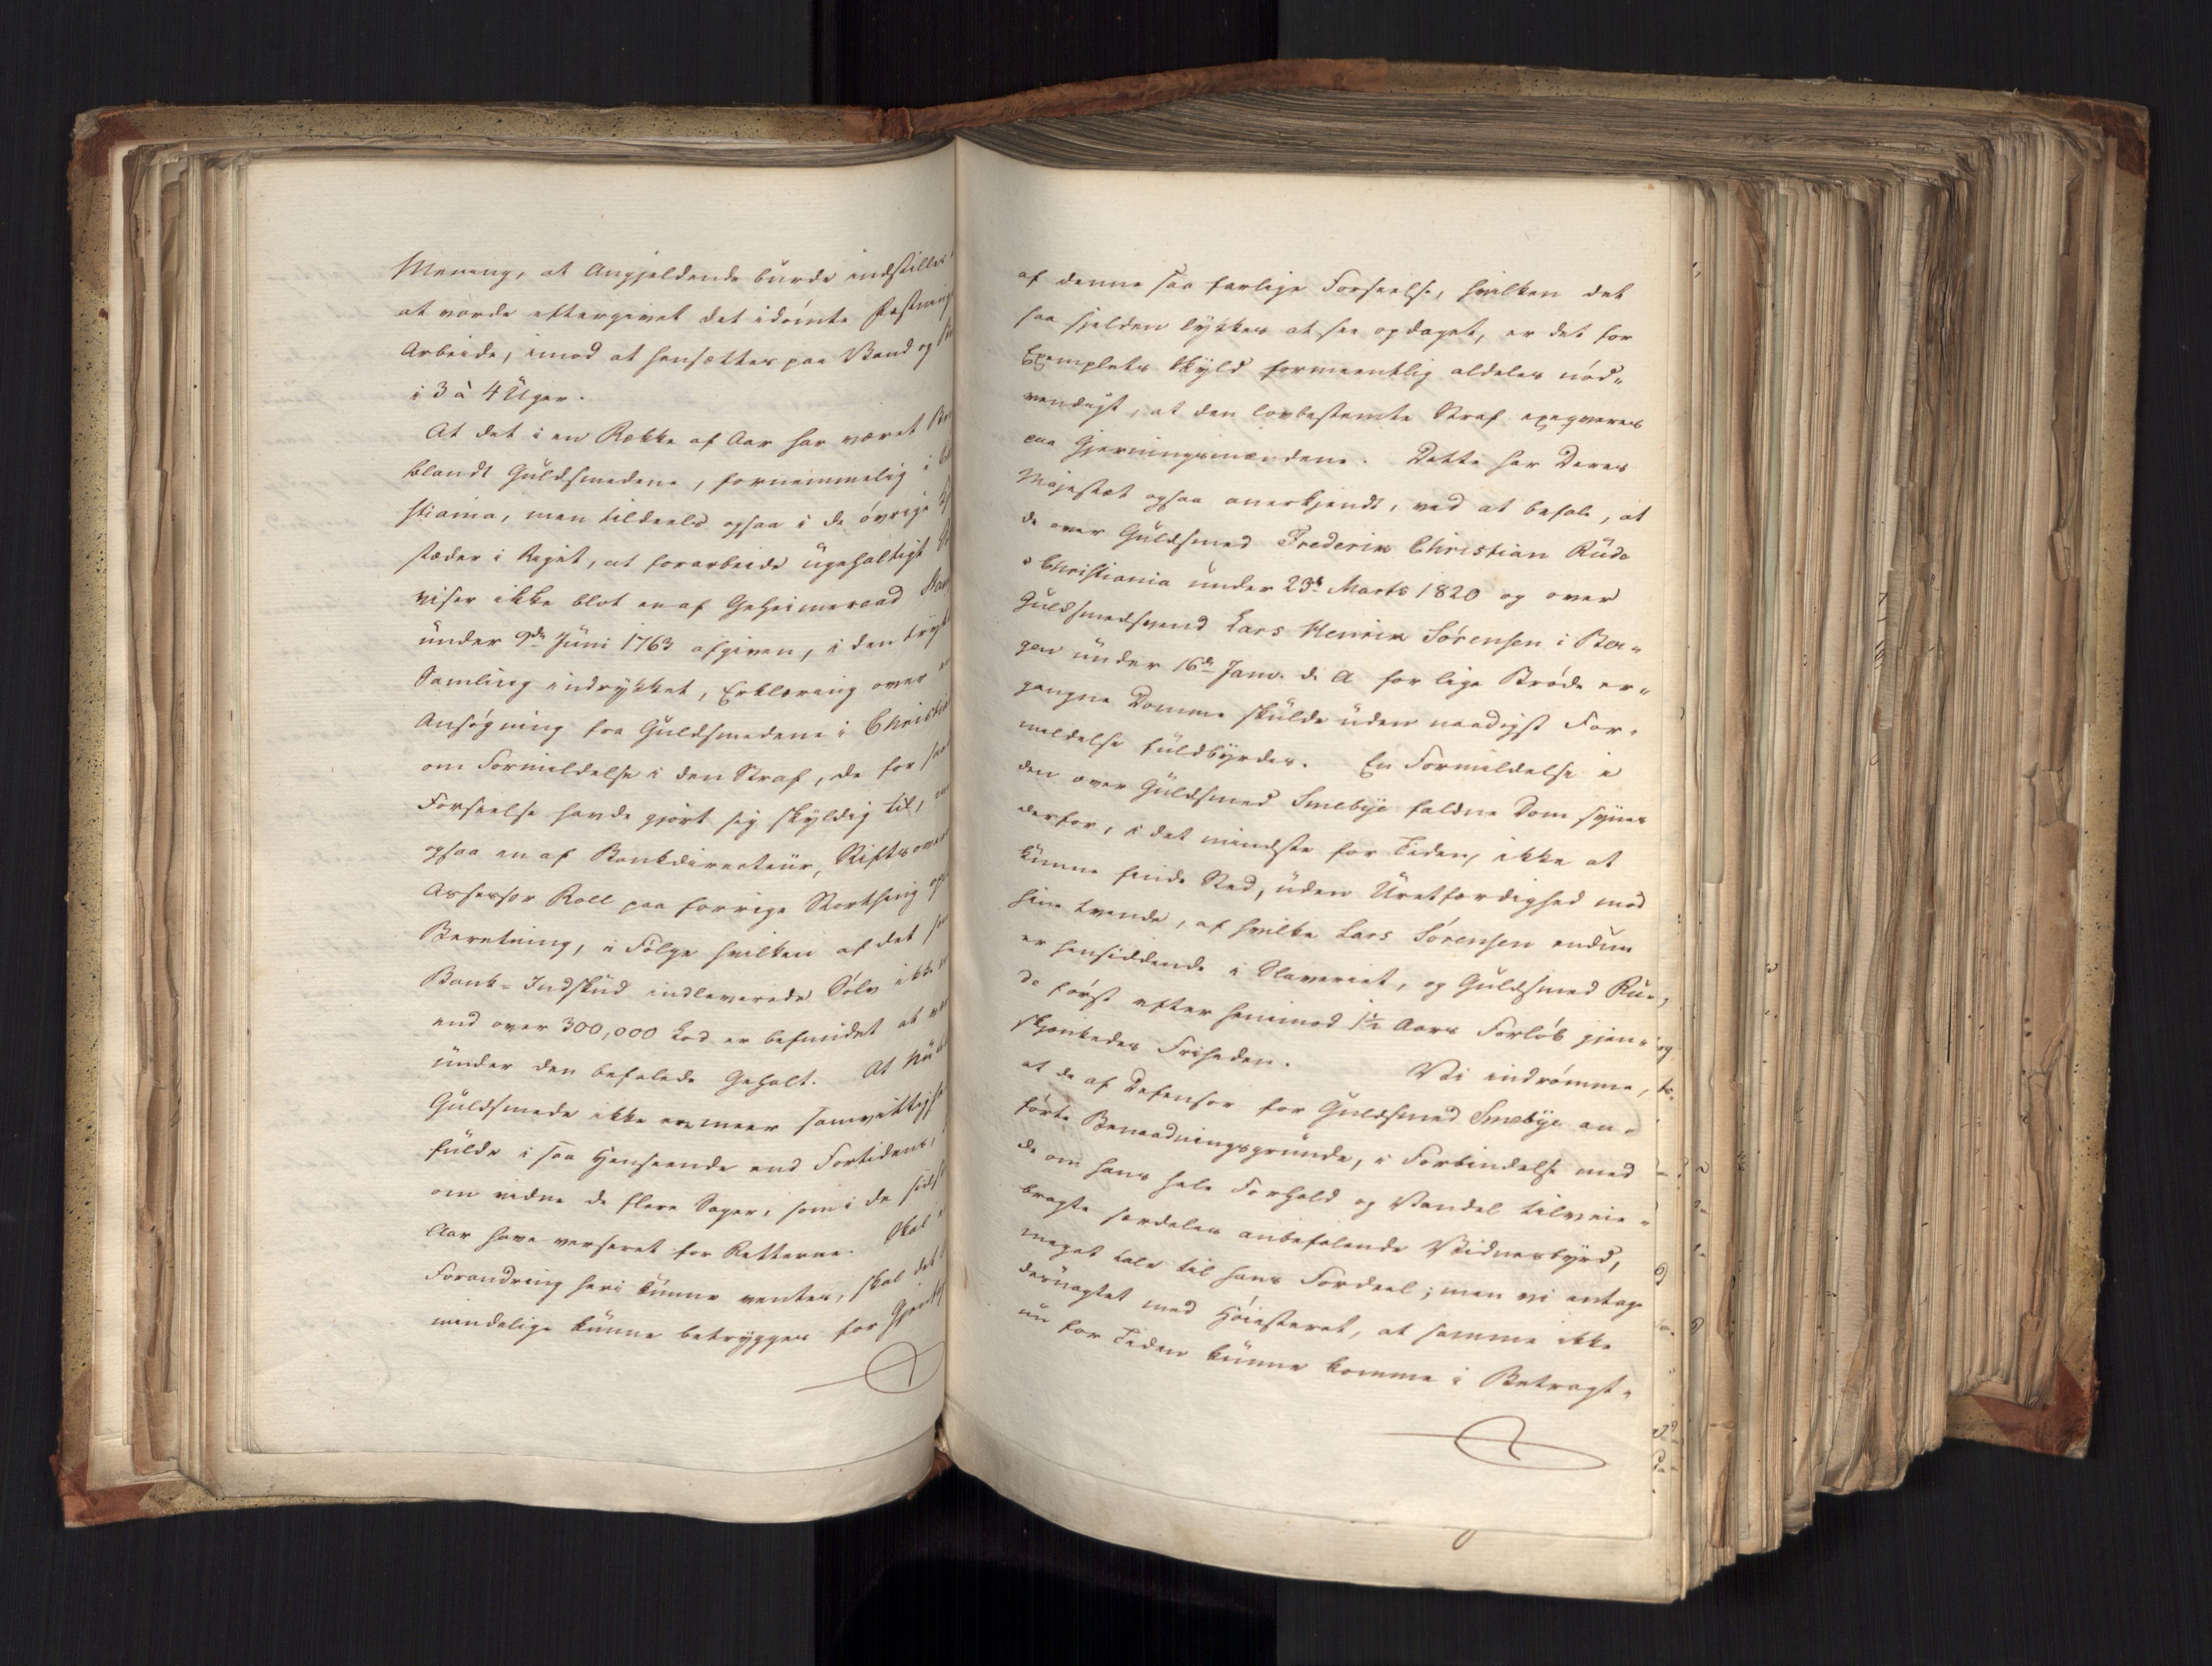 Mening, at Angjeldende burde indstilles
at vorde eftergivet det idømte Fæstnings
Arbeide, imod at hensættes paa Vand og
i 3 à 4 Uger.
At det i en Række af Aar har været
blandt Guldsmedene, fornemmelig i
stiania, men tildeels ogsaa i de øvrige
stæder i Riget, at forarbeide ugehaltigt
viser ikke blot en af Geheimeraad
under 9de Juni 1763 afgiven, i den
Samling indrykket, Erklæring over
Ansøgning fra Guldsmedene i Christia
om Formildelse i den Straf, de for
Forseelse havde gjort sig skyldig til,
ogsaa en af Bankdirecteur, Stiftsover
Assessor Roll paa forrige Storthing
Beretning, i Følge hvilken af det
Bank-Indskud indleverede Sølv ikke
end over 300,000 Lod er befundet at
under den befalede Gehalt. At
Guldsmede ikke ere meer samvittigheds
fulde i saa Henseende end Fortidens,
om vidne de flere Sager, som i de sidste
Aar have verseret for Retterne. Skal
Forandring heri kunne ventes, skal det
mindelige kunne betrygges for
af denne saa farlige Forseelse, hvilken det
saa sjelden lykkes at see opdaget, er det for
Exemplets Skyld formeentlig aldeles nød-
vendigt, at den lovbestemte Straf exeqveres
paa Gjerningsmændene. Dette har Deres
Majestæt ogsaa anerkjendt, ved at befale, at
de over Guldsmed Frederik Christian Rude
i Christiania under 23de Marts 1820 og over
Guldsmedsvend Lars Henrik Sørensen i Ber-
gen under 16de Janv. d. A for lige Brøde er-
gangne Domme skulde uden naadigst For-
mildelse fuldbyrdes. En Formildelse i
den over Guldsmed Smebye faldne Dom synes
derfor, i det mindste for Tiden, ikke at
kunne finde Sted, uden Uretfærdighed mod
hine tvende, af hvilke Lars Sørensen endnu
er hensiddende i Slaveriet, og Guldsmed Ru-
de først efter henimod 1½ Aars Forløb gjen-
skjænkedes Friheden. Vi indrømme,
at de af Defensor for Guldsmed Smebye an-
førte Benaadningsgrunde, i Forbindelse med
de om hans hele Forhold og Vandel tilveie-
bragte særdeles anbefalende Vidnesbyrd,
meget tale til hans Fordeel; men vi antage
desuagtet med Høiesteret, at samme ikke
nu for Tiden kunne komme i Betragt-